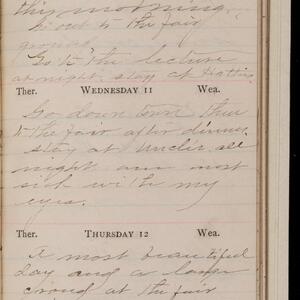 this morning.
out to the fair
ground
Go to the lecture
at night. stay at Hatties
Ther. WEDNESDAY 11 Wea.
Go down town then
to the fair after dinner.
stay at Uncles all
night am most
sick with my
eyes.
Ther. THURSDAY 12 Wea.
A most beautiful
day and a large
croud at the fair